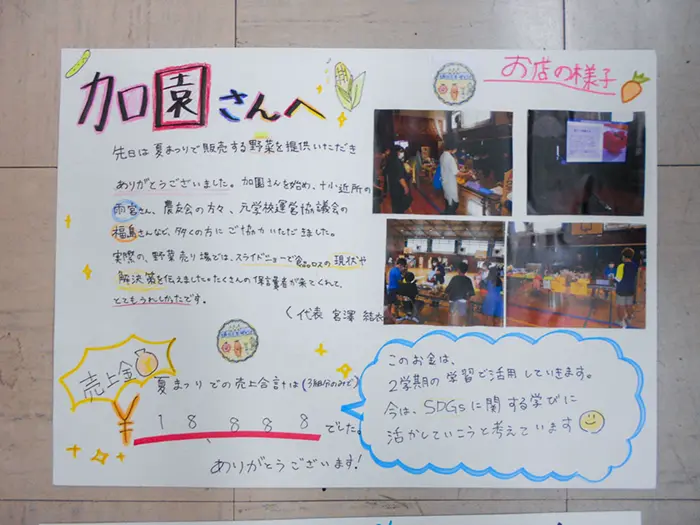 加園さんへ
先日は夏まつりで販売する野菜を提供いただき
ありがとうございました。加園さんを始め、十小近所の
雨宮さん、農友会の方々、元学校運営協議会の
福島さんなど、多くの方にご協力いただきました。
実際の、野菜売り場では、スライドショーで食品ロスの現状や
解決策を伝えました。たくさんの保護者が来てくれて、
とてもうれしかったです。
(代表 宮澤 結衣
お店の様子
売上金
夏まつりでの売上合計は(3組分のみで)
¥18,888でした。
ありがとうございます!
このお金は、
2学期の学習で活用していきます。
今は、SDGsに関する学びに
活かしていこうと考えています